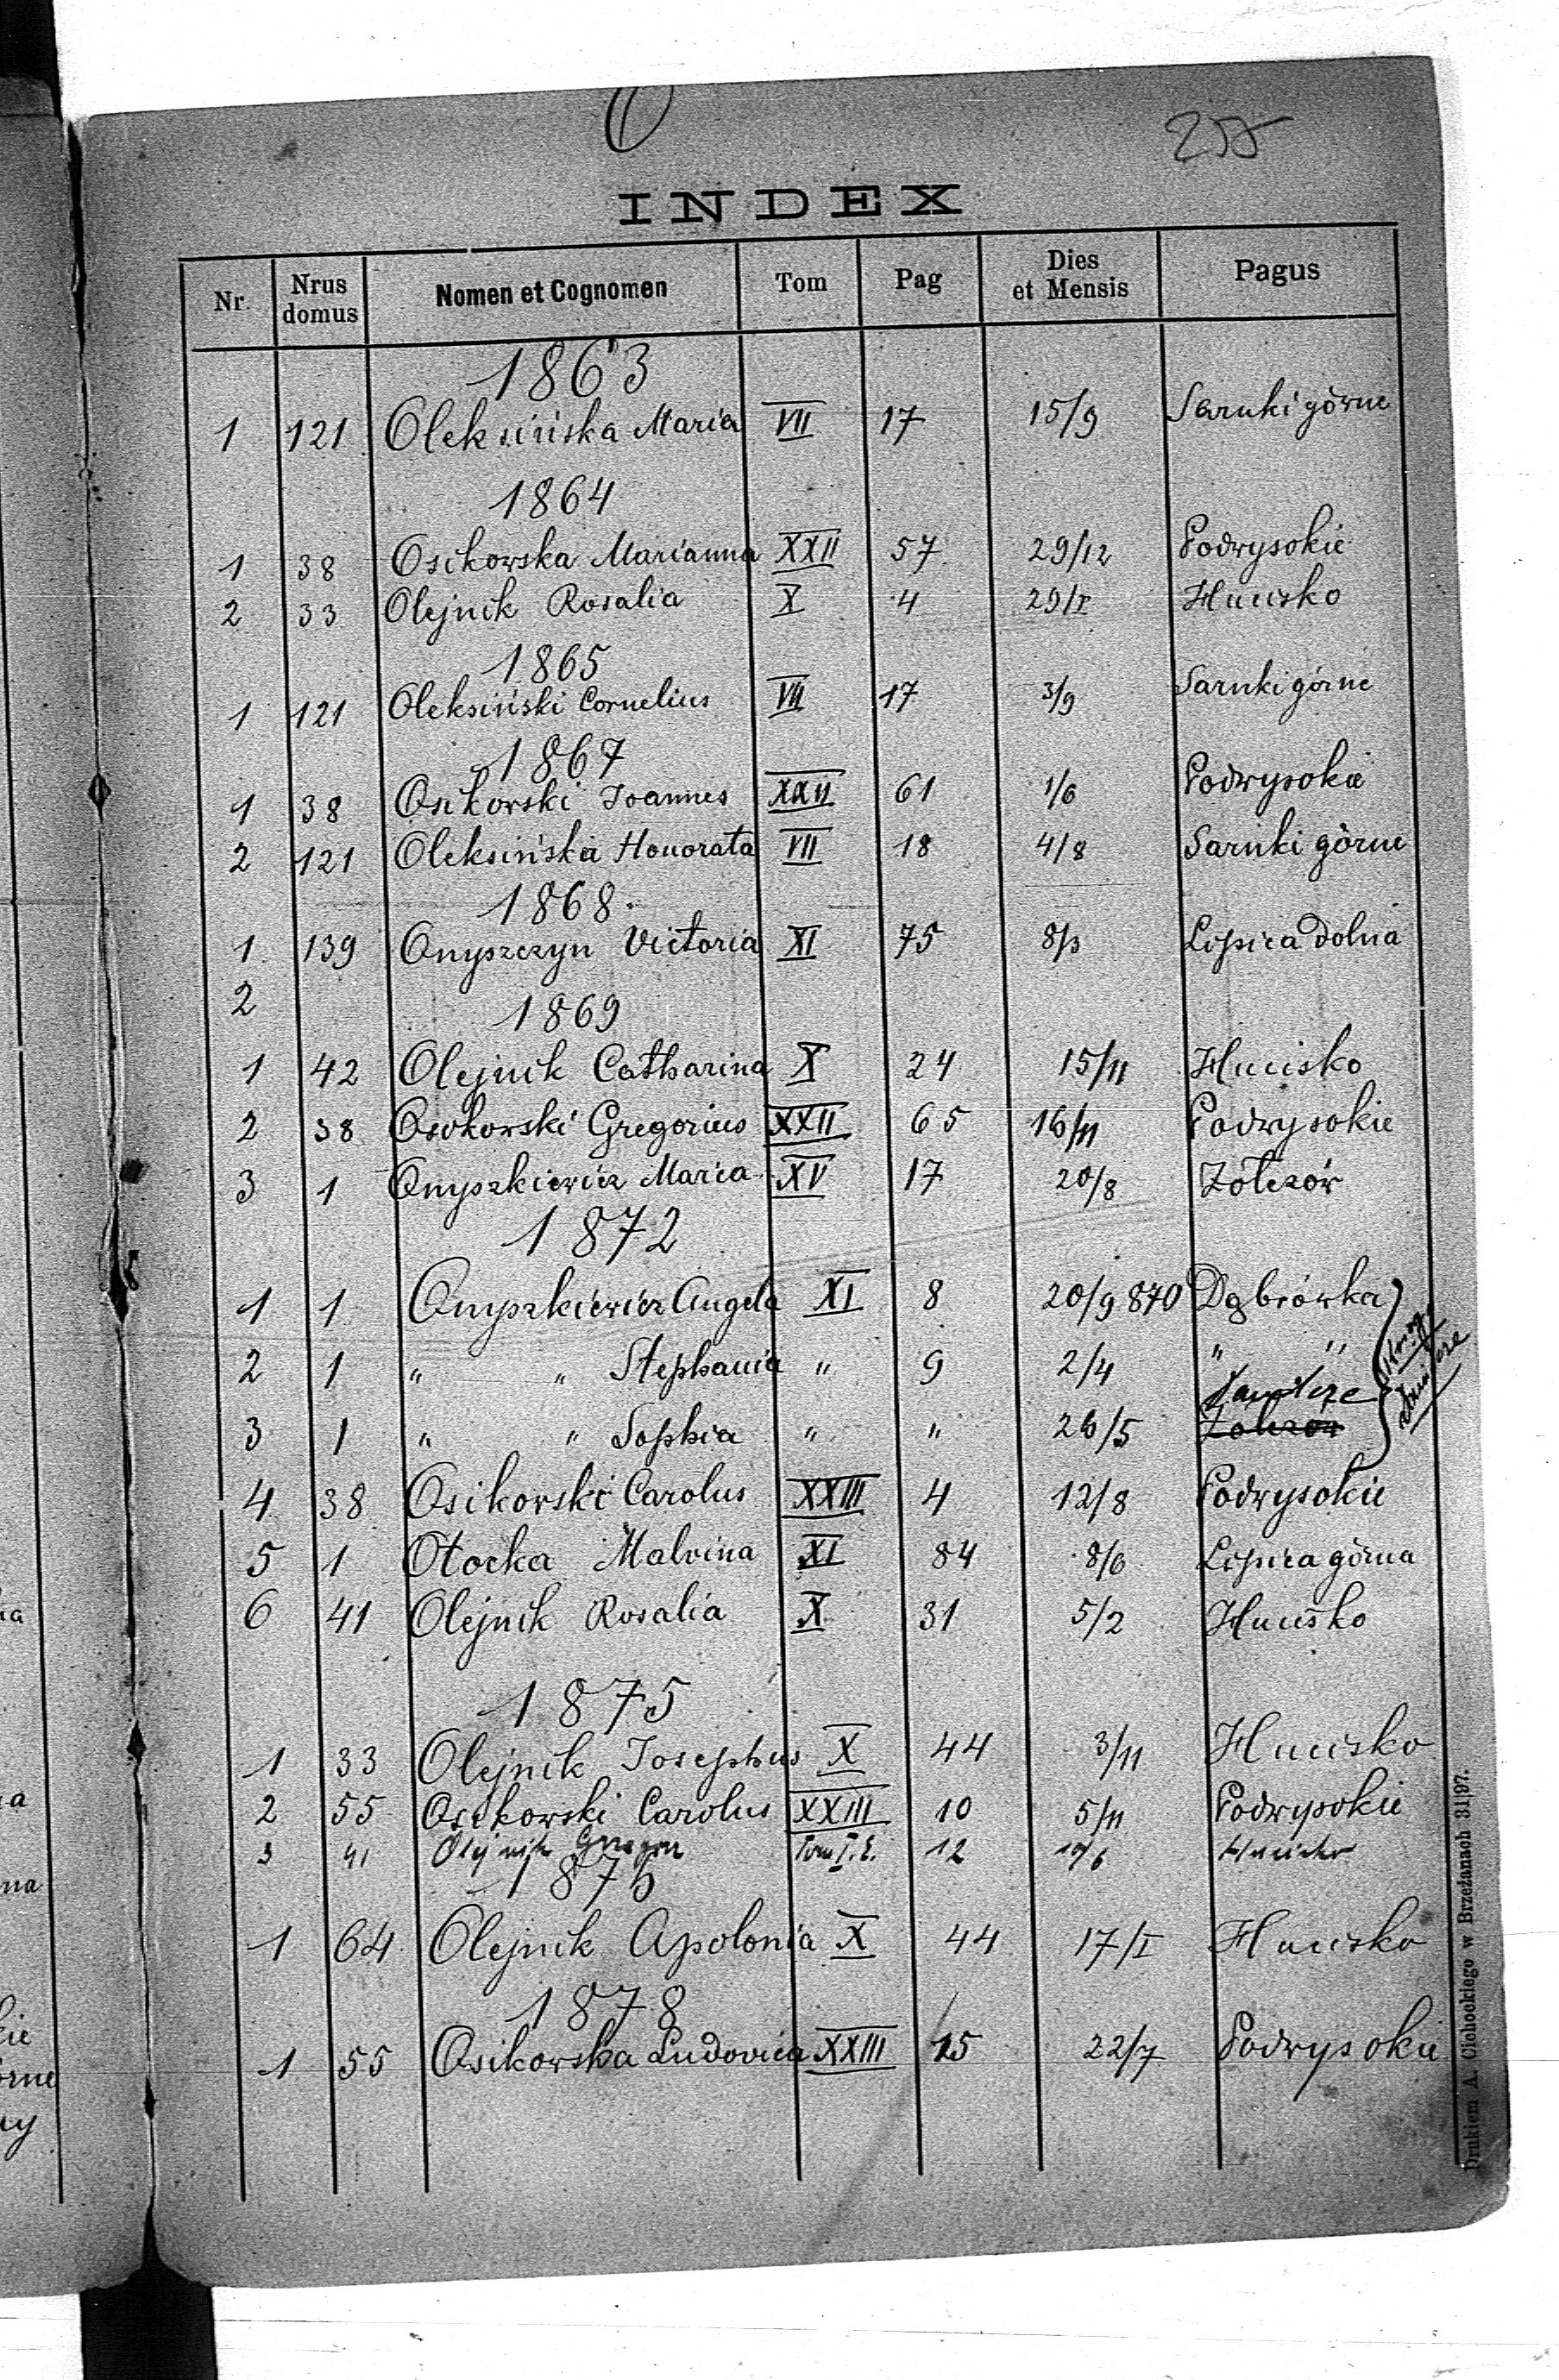 O
255
INDEX
Nr. Nrus domus Nomen et Cognomen Tom Pag Dies et Mensis Pagus
1863
1 121 Oleksińska Maria VII 17 15/9 Sarnki górne
1864
1 38 Osikowska Marianna XXII 57 29/12 Podwysokie
2 33 Olejnik Rosalia X 4 29/I Hucisko
1865
1 121 Oleksiński Cornelius VII 17 3/9 Sarnki górne
1867
1 38 Osikorski Joannes XXII 61 1/6 Podwysokie
2 121 Oleksińska Honorata VII 18 4/8 Sarnki górne
1868
1 139 Onyszczyn Victoria XI 75 8/3 Lipica dolna
2
1869
1 42 Olejnik Catharina X 24 15/11 Hucisko
2 38 Osokowski Gregorius XXII 65 16/11 Podwysokie
3 1 Onyszkiewicz Maria XV 17 20/8 Żołczów
1872
1 1 Onyszkiewicz Angela XI 8 20/9 870 Dąbrówka
2 1 " " Stephania " 9 2/4 " "
3 1 " " Sophia " " 26/5 Żołczów
4 38 Osikorski Carolus XXIII 4 12/8 Podwysokie
5 1 Otocka Malvina XI 84 8/6 Lipica górna
6 41 Olejnik Rosalia X 31 5/2 Hucisko
1875
1 33 Olejnik Josephus X 44 3/11 Hucisko
2 55 Osikowski Carolus XXIII 10 5/11 Podwysokie
3 41 Olejnik Tom I. 12 10/6 Hucisko
1876
1 64 Olejnik Apolonia X 44 17/I Hucisko
1878
1 55 Osikowska Ludovica XXIII 15 22/7 Podwysokie
Drukiem A. Cichockiego w Brzeżanach 31|97.